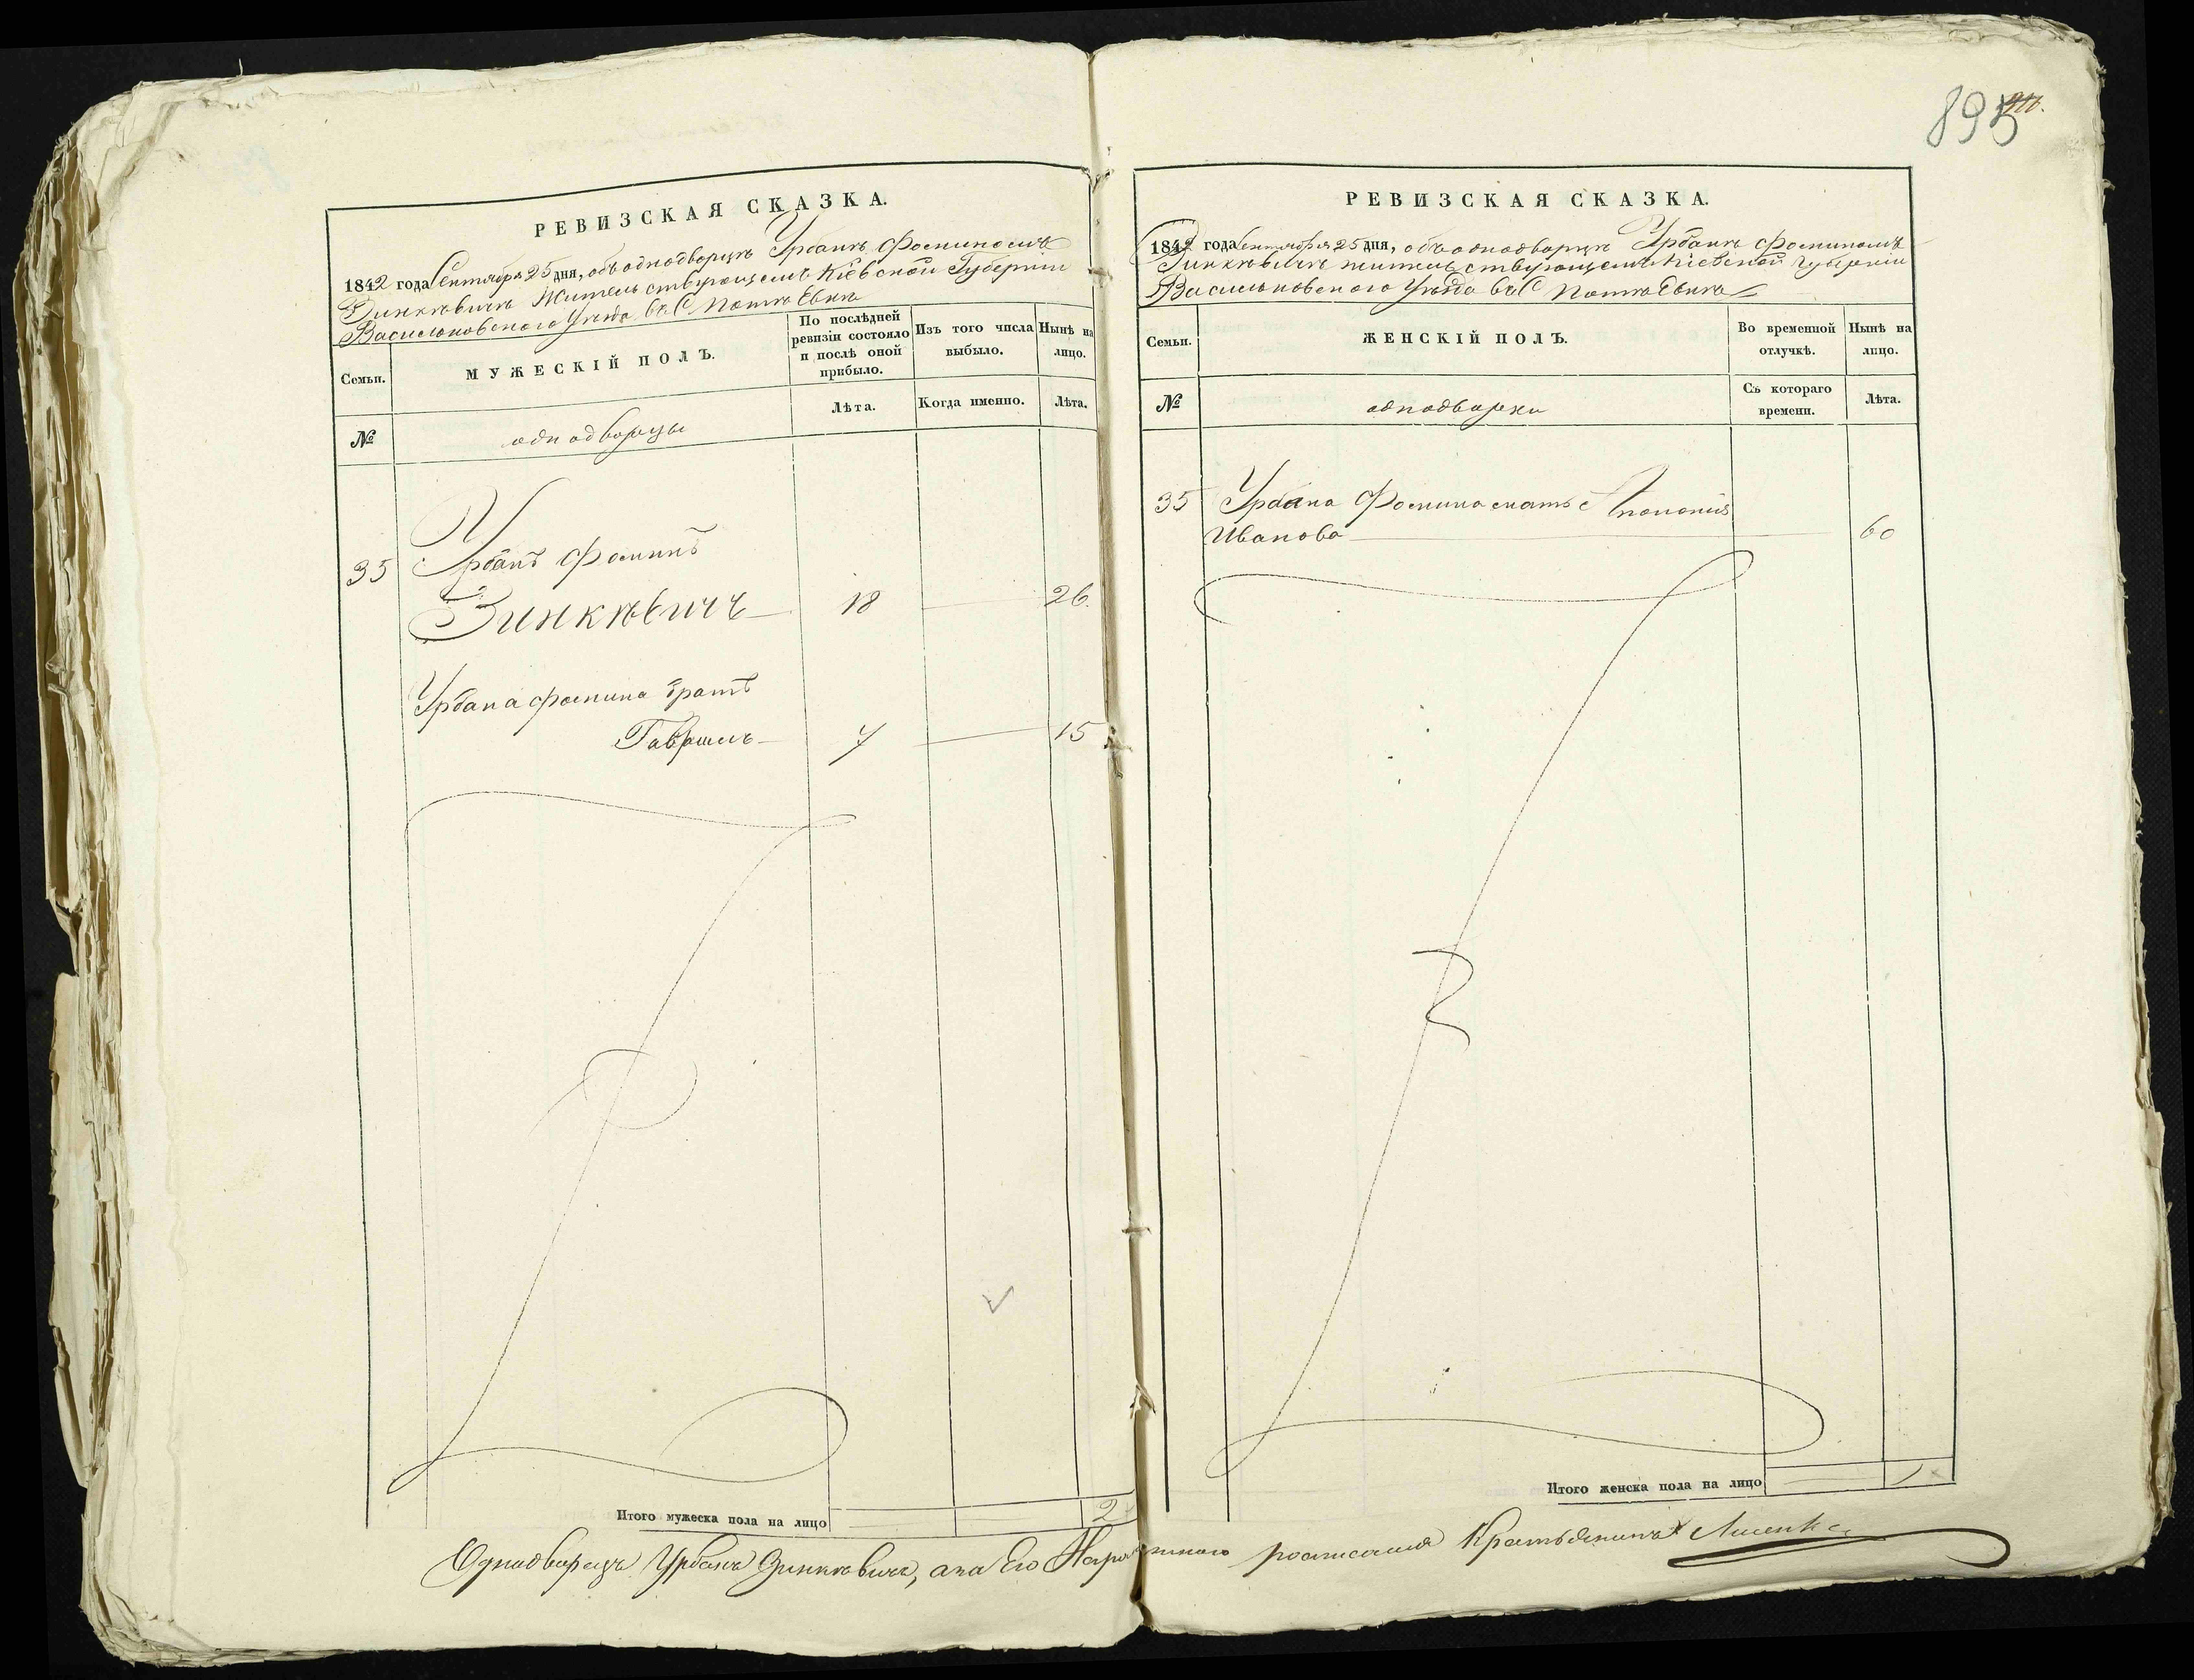 895
РЕВИЗСКАЯ СКАЗКА.
1842 года Сентября 25 дня, объ однодворцѣ Урбанѣ Фоминомъ
Зинкѣвичѣ Жительствующемъ Кіевской Губерніи
Васильковскаго Уѣзда въ С
Семьи.
МУЖЕСКІЙ ПОЛЪ.
По послѣдней ревизіи состояло и послѣ оной прибыло.
Изъ того числа выбыло.
Нынѣ на лицо.
№
однодворцы
Лѣта.
Когда именно.
Лѣта.
35 Урбанъ Фоминъ
Зинкѣвичъ 18 26.
Урбана Фомина братъ
Гаврилъ 7 15
Итого мужеска пола на лицо 2
РЕВИЗСКАЯ СКАЗКА.
1842 года Сентября 25 дня, объ однодворцѣ Урбанѣ Фоминомъ
Зинкѣвичѣ жительствующемъ Кіевской Губерніи
Васильковскаго Уѣзда въ С
Семьи.
ЖЕНСКІЙ ПОЛЪ.
Во временной отлучкѣ.
Нынѣ на лицо.
№
однодворки
Съ котораго времени.
Лѣта.
35 Урбана Фомина мать Аполонія
Иванова 60
Итого женска пола на лицо 1
Однодворецъ Урбанъ Зинкѣвичъ, а на Его